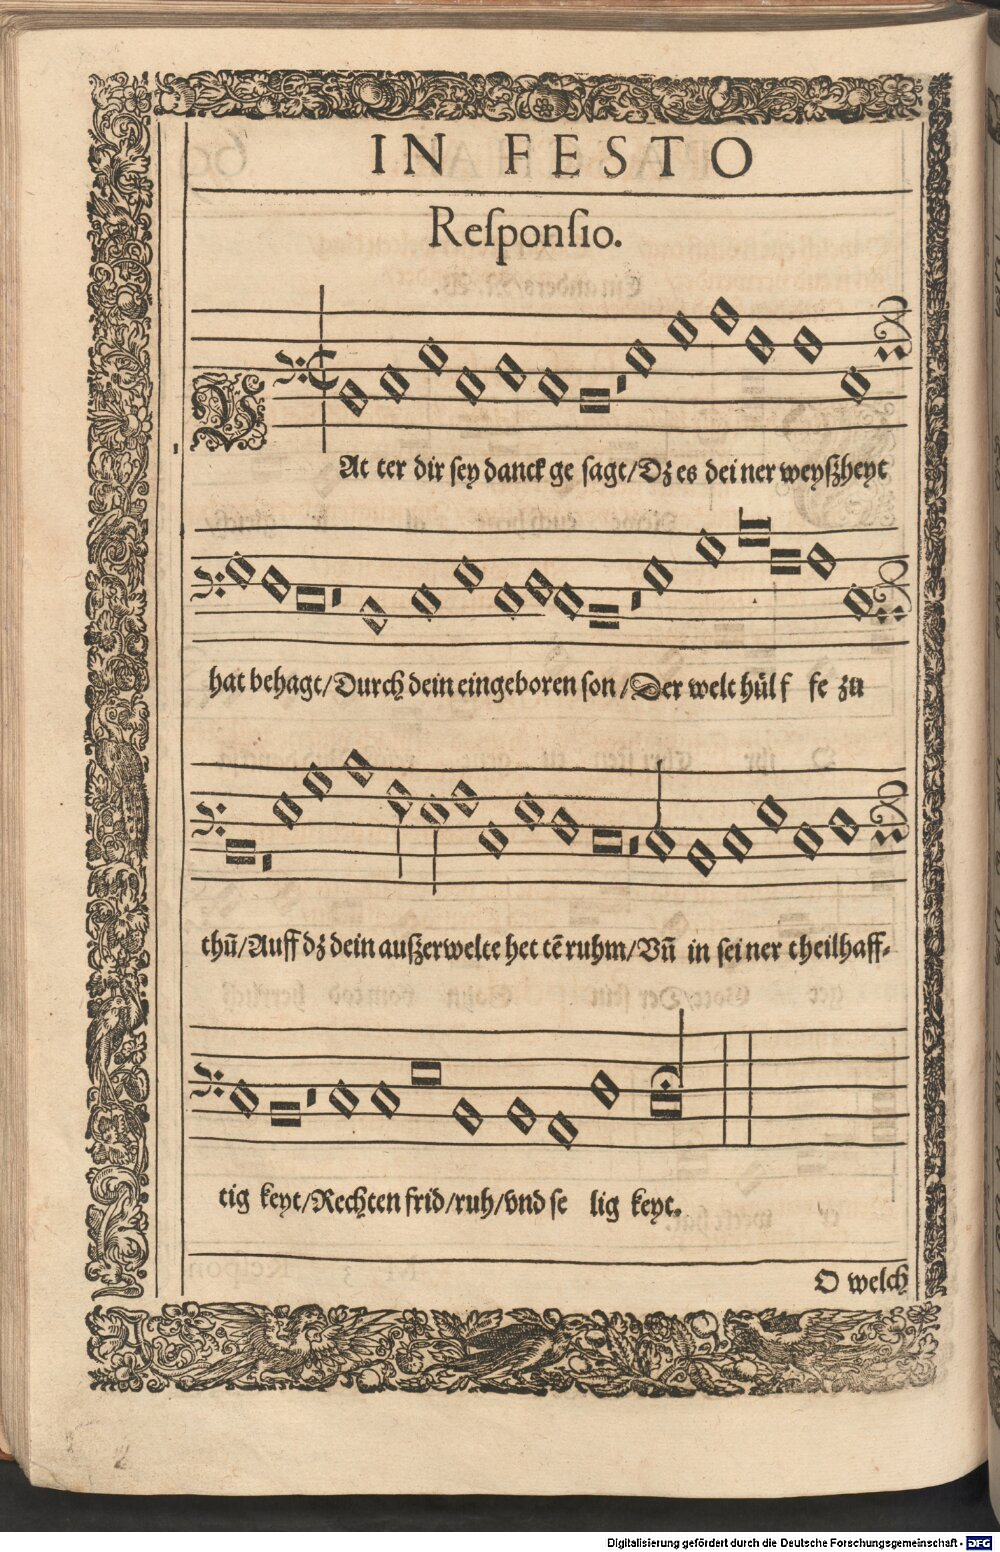 IN FESTO
Reſponſio.
V
At ter dir ſey danck ge ſagt/Dz es dei ner weyſzheyt
hat behagt/Durch dein eingeboren ſon/Der welt hülf fe zu
thū/Auff dz dein auſzerwelte het tē ruhm/Vn̄ in ſei ner theilhaff⸗
tig keyt/Rechten frid/ruh/vnd ſe lig keyt.
O welch
Digitalisierung gefördert durch die Deutsche Forschungsgemeinschaft - DFG